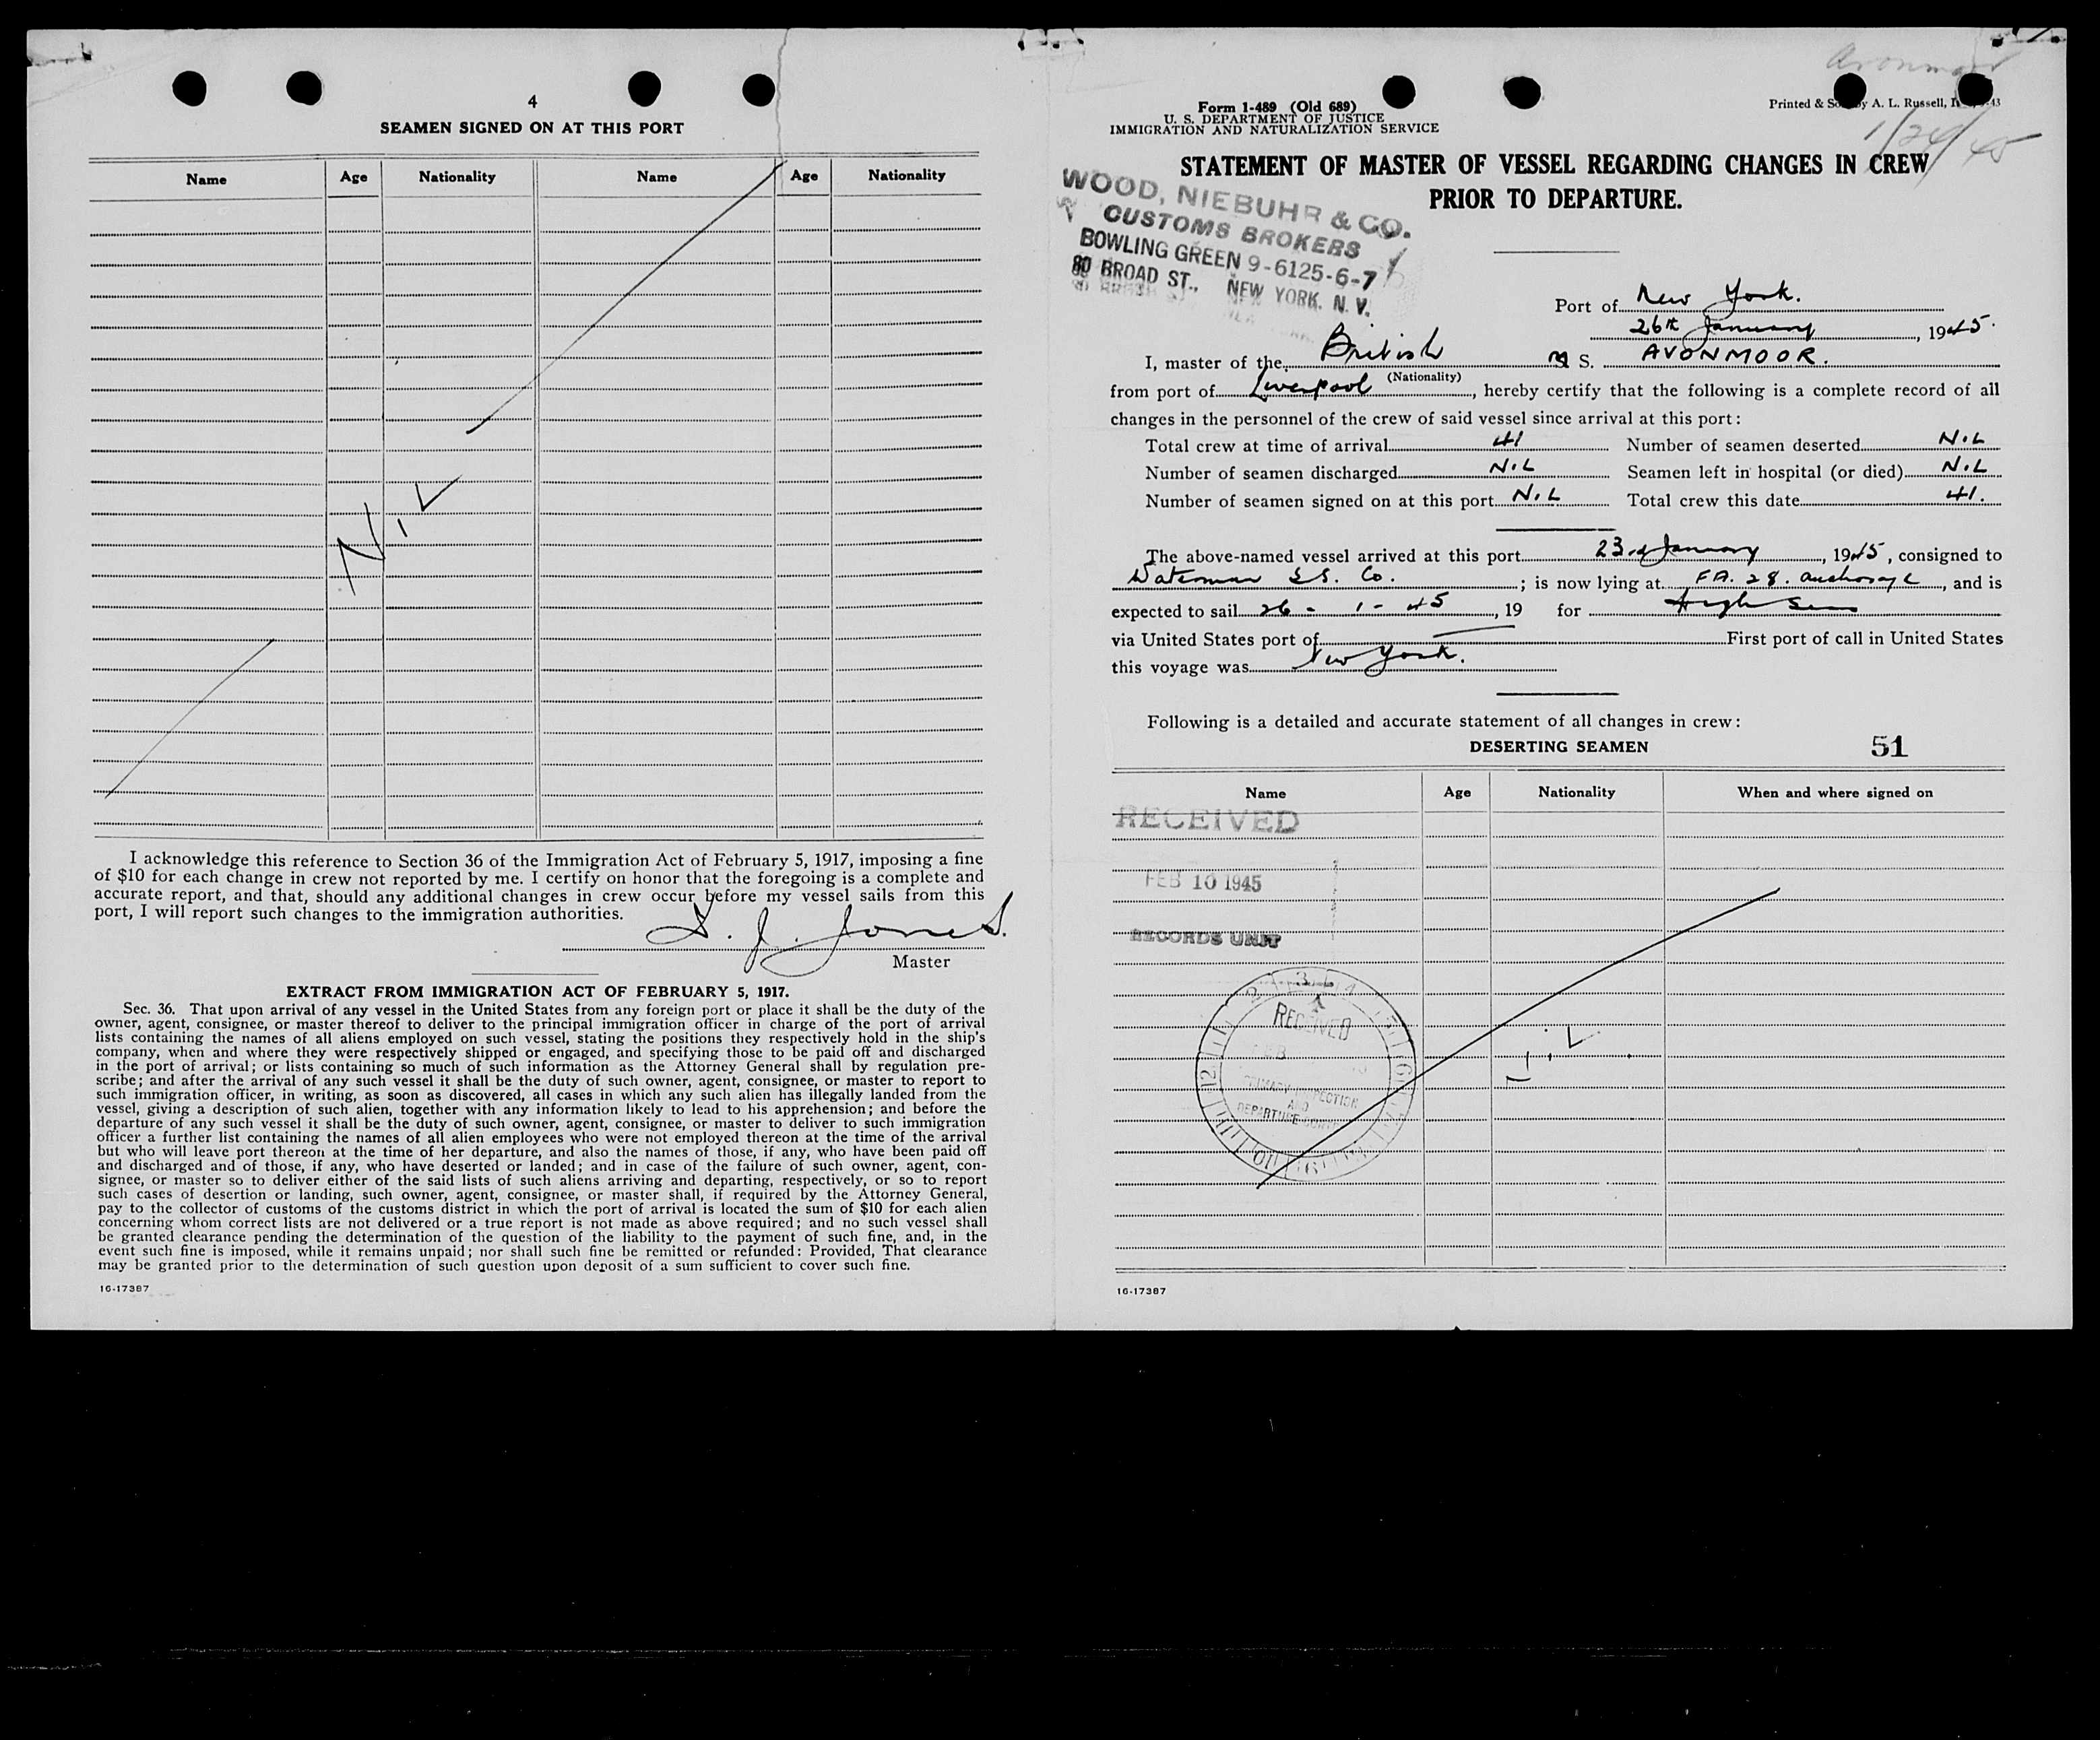 4
SEAMEN SIGNED ON AT THIS PORT
Name Age Nationality Name Age Nationality
NIL
I acknowledge this reference to Section 36 of the Immigration Act of February 5, 1917, imposing a fine
of $10 for each change in crew not reported by me. I certify on honor that the foregoing is a complete and
accurate report, and that, should any additional changes in crew occur before my vessel sails from this
port, I will report such changes to the immigration authorities.
S. J. Jones.
Master
EXTRACT FROM IMMIGRATION ACT OF FEBRUARY 5, 1917.
Sec. 36. That upon arrival of any vessel in the United States from any foreign port or place it shall be the duty of the
owner, agent, consignee, or master thereof to deliver to the principal immigration officer in charge of the port of arrival
lists containing the names of all aliens employed on such vessel, stating the positions they respectively hold in the ship's
company, when and where they were respectively shipped or engaged, and specifying those to be paid off and discharged
in the port of arrival; or lists containing so much of such information as the Attorney General shall by regulation pre-
scribe; and after the arrival of any such vessel it shall be the duty of such owner, agent, consignee, or master to report to
such immigration officer, in writing, as soon as discovered, all cases in which any such alien has illegally landed from the
vessel, giving a description of such alien, together with any information likely to lead to his apprehension; and before the
departure of any such vessel it shall be the duty of such owner, agent, consignee, or master to deliver to such immigration
officer a further list containing the names of all alien employees who were not employed thereon at the time of the arrival
but who will leave port thereon at the time of her departure, and also the names of those, if any, who have been paid off
and discharged and of those, if any, who have deserted or landed; and in case of the failure of such owner, agent, con-
signee, or master so to deliver either of the said lists of such aliens arriving and departing, respectively, or so to report
such cases of desertion or landing, such owner, agent, consignee, or master shall, if required by the Attorney General,
pay to the collector of customs of the customs district in which the port of arrival is located the sum of $10 for each alien
concerning whom correct lists are not delivered or a true report is not made as above required; and no such vessel shall
be granted clearance pending the determination of the question of the liability to the payment of such fine, and, in the
event such fine is imposed, while it remains unpaid; nor shall such fine be remitted or refunded: Provided, That clearance
may be granted prior to the determination of such question upon deposit of a sum sufficient to cover such fine.
16-17387
Avonmoor
Form I-489 (Old 689)
U. S. DEPARTMENT OF JUSTICE
IMMIGRATION AND NATURALIZATION SERVICE
Printed & Sold by A. L. Russell,
STATEMENT OF MASTER OF VESSEL REGARDING CHANGES IN CREW
PRIOR TO DEPARTURE.
WOOD, NIEBUHR & CO.
CUSTOMS BROKERS
BOWLING GREEN 9-6125-6-7
80 BROAD ST., NEW YORK, N. Y.
Port of New York.
26th January, 1945.
I, master of the British M S. AVONMOOR.
(Nationality)
from port of Liverpool, hereby certify that the following is a complete record of all
changes in the personnel of the crew of said vessel since arrival at this port:
Total crew at time of arrival 41 Number of seamen deserted NIL
Number of seamen discharged NIL Seamen left in hospital (or died) NIL
Number of seamen signed on at this port NIL Total crew this date 41.
The above-named vessel arrived at this port 23rd January, 1945, consigned to
Waterman S.S. Co.; is now lying at F.A. 28. anchorage, and is
expected to sail 26 - 1 - 45, 19 for High Seas
via United States port of — First port of call in United States
this voyage was New York.
Following is a detailed and accurate statement of all changes in crew:
DESERTING SEAMEN 51
Name Age Nationality When and where signed on
RECEIVED
FEB 10 1945
RECORDS UNIT
RECEIVED
FEB
PRIMARY INSPECTION
AND
DEPARTURE
NIL
16-17387